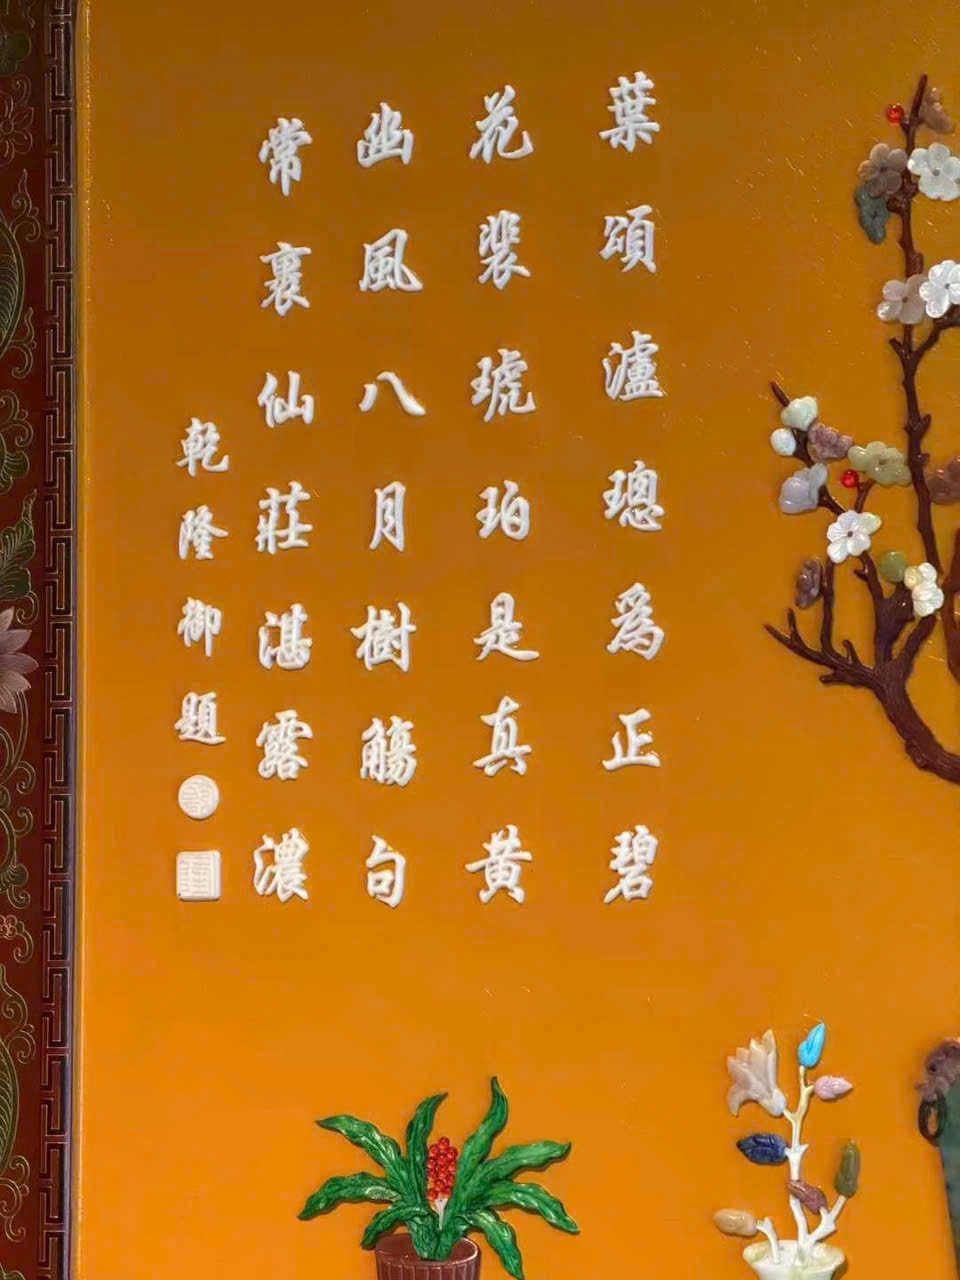 葉頌瀘璁為正碧
花裴琥珀是真黄
幽風八月樹觴句
常裏仙莊湛露濃
乾隆御題